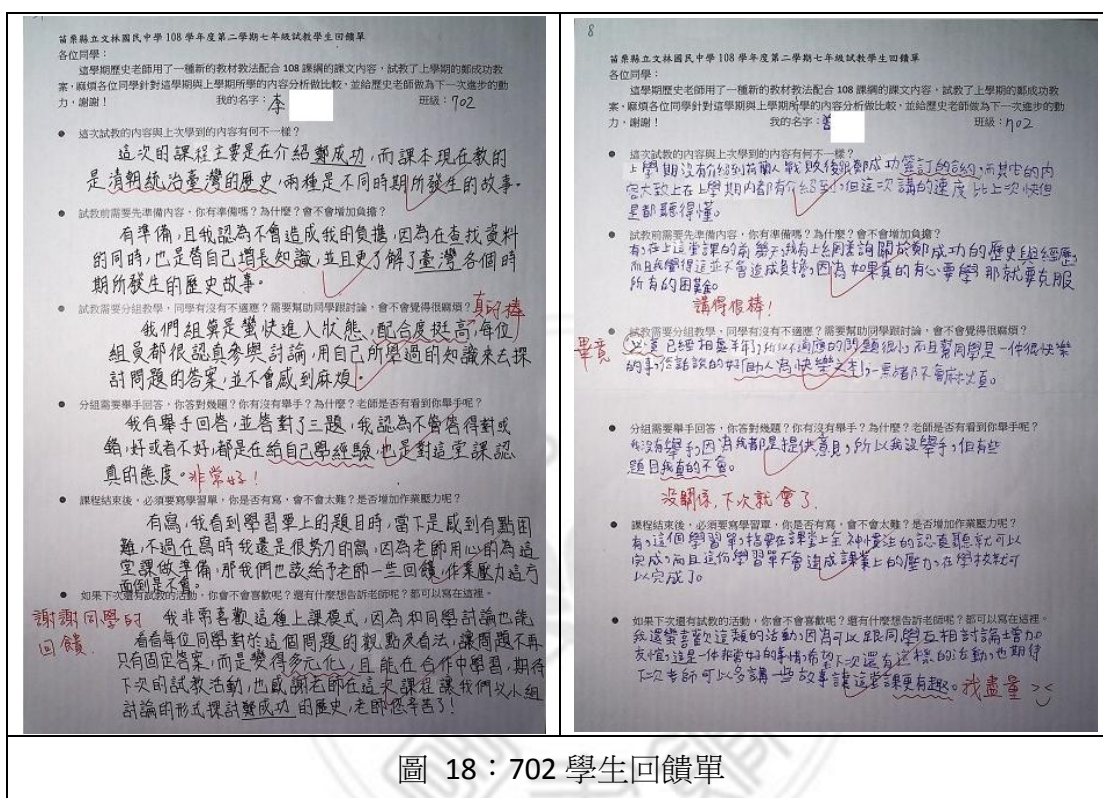 苗栗縣立文林國民中學 108 學年度第二學期七年級試教學生回饋單
各位同學：
這學期歷史老師用了一種新的教材教法配合 108 課綱的課文內容，試教了上學期的鄭成功教
案，麻煩各位同學針對這學期與上學期所學的內容分析做比較，並給歷史老師做為下一次進步的動
力，謝謝！ 我的名字：李 班級：702
● 這次試教的內容與上次學到的內容有何不一樣？
這次的課程主要是在介紹鄭成功，而課本現在教的
是清朝統治臺灣的歷史，兩種是不同時期所發生的故事。
● 試教前需要先準備內容，你有準備嗎？為什麼？會不會增加負擔？
有準備，且我認為不會造成我的負擔，因為在查找資料
的同時，也是替自己增長知識，並且更了解了臺灣各個時
期所發生的歷史故事。
● 試教需要分組教學，同學有沒有不適應？需要幫助同學跟討論，會不會覺得很麻煩？ 真的棒
我們組算是蠻快進入狀態，配合度挺高，每位
組員都很認真參與討論，用自己所學過的知識來去探
討問題的答案，並不會感到麻煩。
● 分組需要舉手回答，你答對幾題？你有沒有舉手？為什麼？老師是否有看到你舉手呢？
我有舉手回答，並答對了三題，我認為不管答得對或
錯，好或者不好，都是在給自己學經驗，也是對這堂課認
真的態度。非常好！
● 課程結束後，必須要寫學習單，你是否有寫，會不會太難？是否增加作業壓力呢？
有寫，我看到學習單上的題目時，當下是感到有點困
難，不過在寫時我還是很努力的寫，因為老師用心的為這
堂課做準備，那我們也該給予老師一些回饋，作業壓力這方
面倒是不會。
● 如果下次還有試教的活動，你會不會喜歡呢？還有什麼想告訴老師呢？都可以寫在這裡。
謝謝同學的 我非常喜歡這種上課模式，因為和同學討論也能
回饋. 看看每位同學對於這個問題的觀點及看法，讓問題不再
只有固定答案，而是變得多元化，且能在合作中學習，期待
下次的試教活動，也感謝老師在這次課程讓我們以小組
討論的形式探討鄭成功的歷史，老師您辛苦了！
8
苗栗縣立文林國民中學 108 學年度第二學期七年級試教學生回饋單
各位同學：
這學期歷史老師用了一種新的教材教法配合 108 課綱的課文內容，試教了上學期的鄭成功教
案，麻煩各位同學針對這學期與上學期所學的內容分析做比較，並給歷史老師做為下一次進步的動
力，謝謝！ 我的名字： 班級：702
● 這次試教的內容與上次學到的內容有何不一樣？
上學期沒有介紹到荷蘭人戰敗後跟鄭成功簽訂的合約，而其它的內
容大致上在上學期內都有介紹到，但這次講的速度比上次快但
是都聽得懂。
● 試教前需要先準備內容，你有準備嗎？為什麼？會不會增加負擔？
有，在上這堂課的前幾天，我有上網查詢關於鄭成功的歷史與經歷，
而且我覺得這並不會造成負擔，因為如果真的有心要學那就要克服
所有的困難。
講得很棒！
● 試教需要分組教學，同學有沒有不適應？需要幫助同學跟討論，會不會覺得很麻煩？
畢竟 已經相處半年，所以不適應的問題很小，而且幫同學是一件很快樂
的事，俗話說的好「助人為快樂之本」，一點都不會麻煩。
● 分組需要舉手回答，你答對幾題？你有沒有舉手？為什麼？老師是否有看到你舉手呢？
我沒有舉手，因為我都是提供意見，所以我沒舉手，但有些
題目我真的不會。
沒關係，下次就會了.
● 課程結束後，必須要寫學習單，你是否有寫，會不會太難？是否增加作業壓力呢？
有，這個學習單，指要在課堂上全神慣注的認真聽就可以
完成，而且這份學習單不會造成課業上的壓力，在學校就可
以完成了。
● 如果下次還有試教的活動，你會不會喜歡呢？還有什麼想告訴老師呢？都可以寫在這裡。
我還蠻喜歡這類的活動，因為可以跟同學互相討論，增加
友誼，這是一件非常好的事情，希望下次還有這樣的活動，也期待
下次老師可以多講一些故事讓這堂課更有趣。我盡量 ><
圖 18：702 學生回饋單